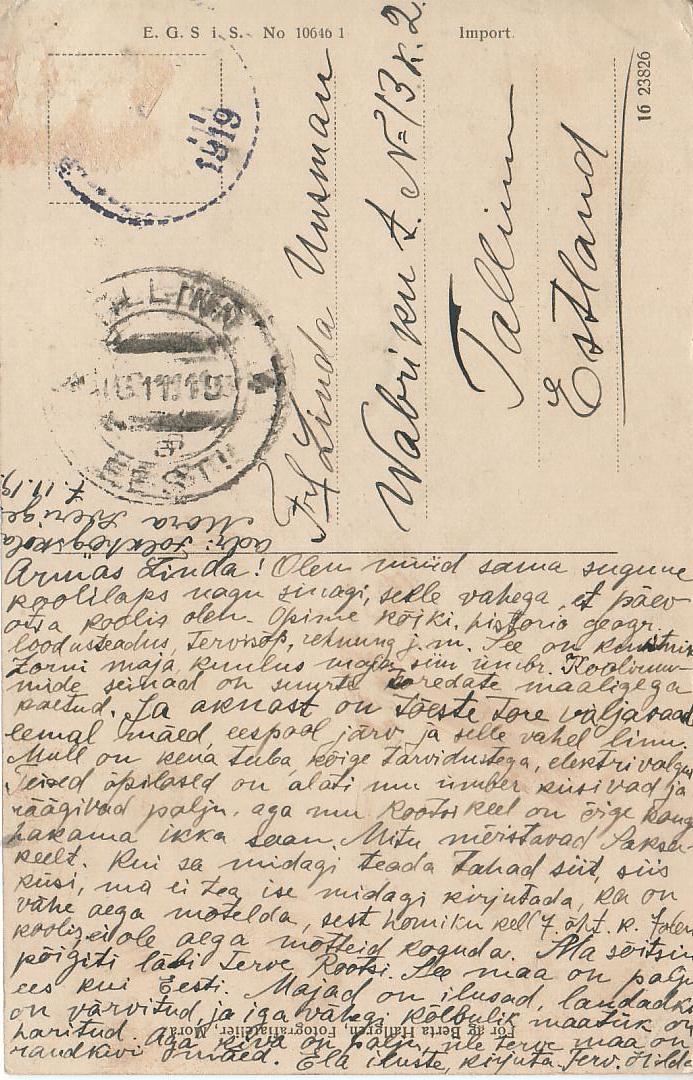 E. G. S i. S. No 10646 1
Import.
16 23826
1919
TALLINN
EESTI
Frl Linda Uusman
Wabriku t. № 13 k. 2.
Tallinn
Estland
adr: Folkhögskola
Mora Sverige
7. 11. 19.
Armas Linda! Olen nüüd sama sugune
koolilaps nagu sinagi, selle vahega, et päev
otsa koolis olen. Õpime kõiki, historio geogr.
loodusteadus, Tervisõp, rehnung j.m. See on
Zorni maja, kuulus maja siin ümbr. Kooliruu-
mide seinad on suurte toredate maaligega
kaetud. Ja aknast on tõeste tore väljavaad
eemal mäed, eespool järv ja selle vahel linn.
Mull on kena tuba, kõige tarvidustega, elektrivalgus
Teised õpilased on alati mu ümber küsivad ja
räägivad palju, aga mu Rootsi keel on õige kang
hakama ikka saan. Mitu mõistavad Saksa-
keelt. Kui sa midagi teada tahad siit, siis
küsi, ma ei tea ise midagi kirjutada, ka on
vähe aega mõtelda, sest homiku kell 7. õht. k. 7 olen
koolis, ei ole aega mõtteid koguda. Ma sõitsin
põigiti läbi terve Rootsi. See maa on palju
ees kui Eesti. Majad on ilusad, laudadki
on värvitud, ja iga vähegi kõlbulik maatük on
haritud. Aga kiva on palju, üle terve maa on
raudkivi mäed. Ela iluste, kirjuta. Terv. Hilda
Förlag Berta Hållgren, Fotografiatelier, Mora